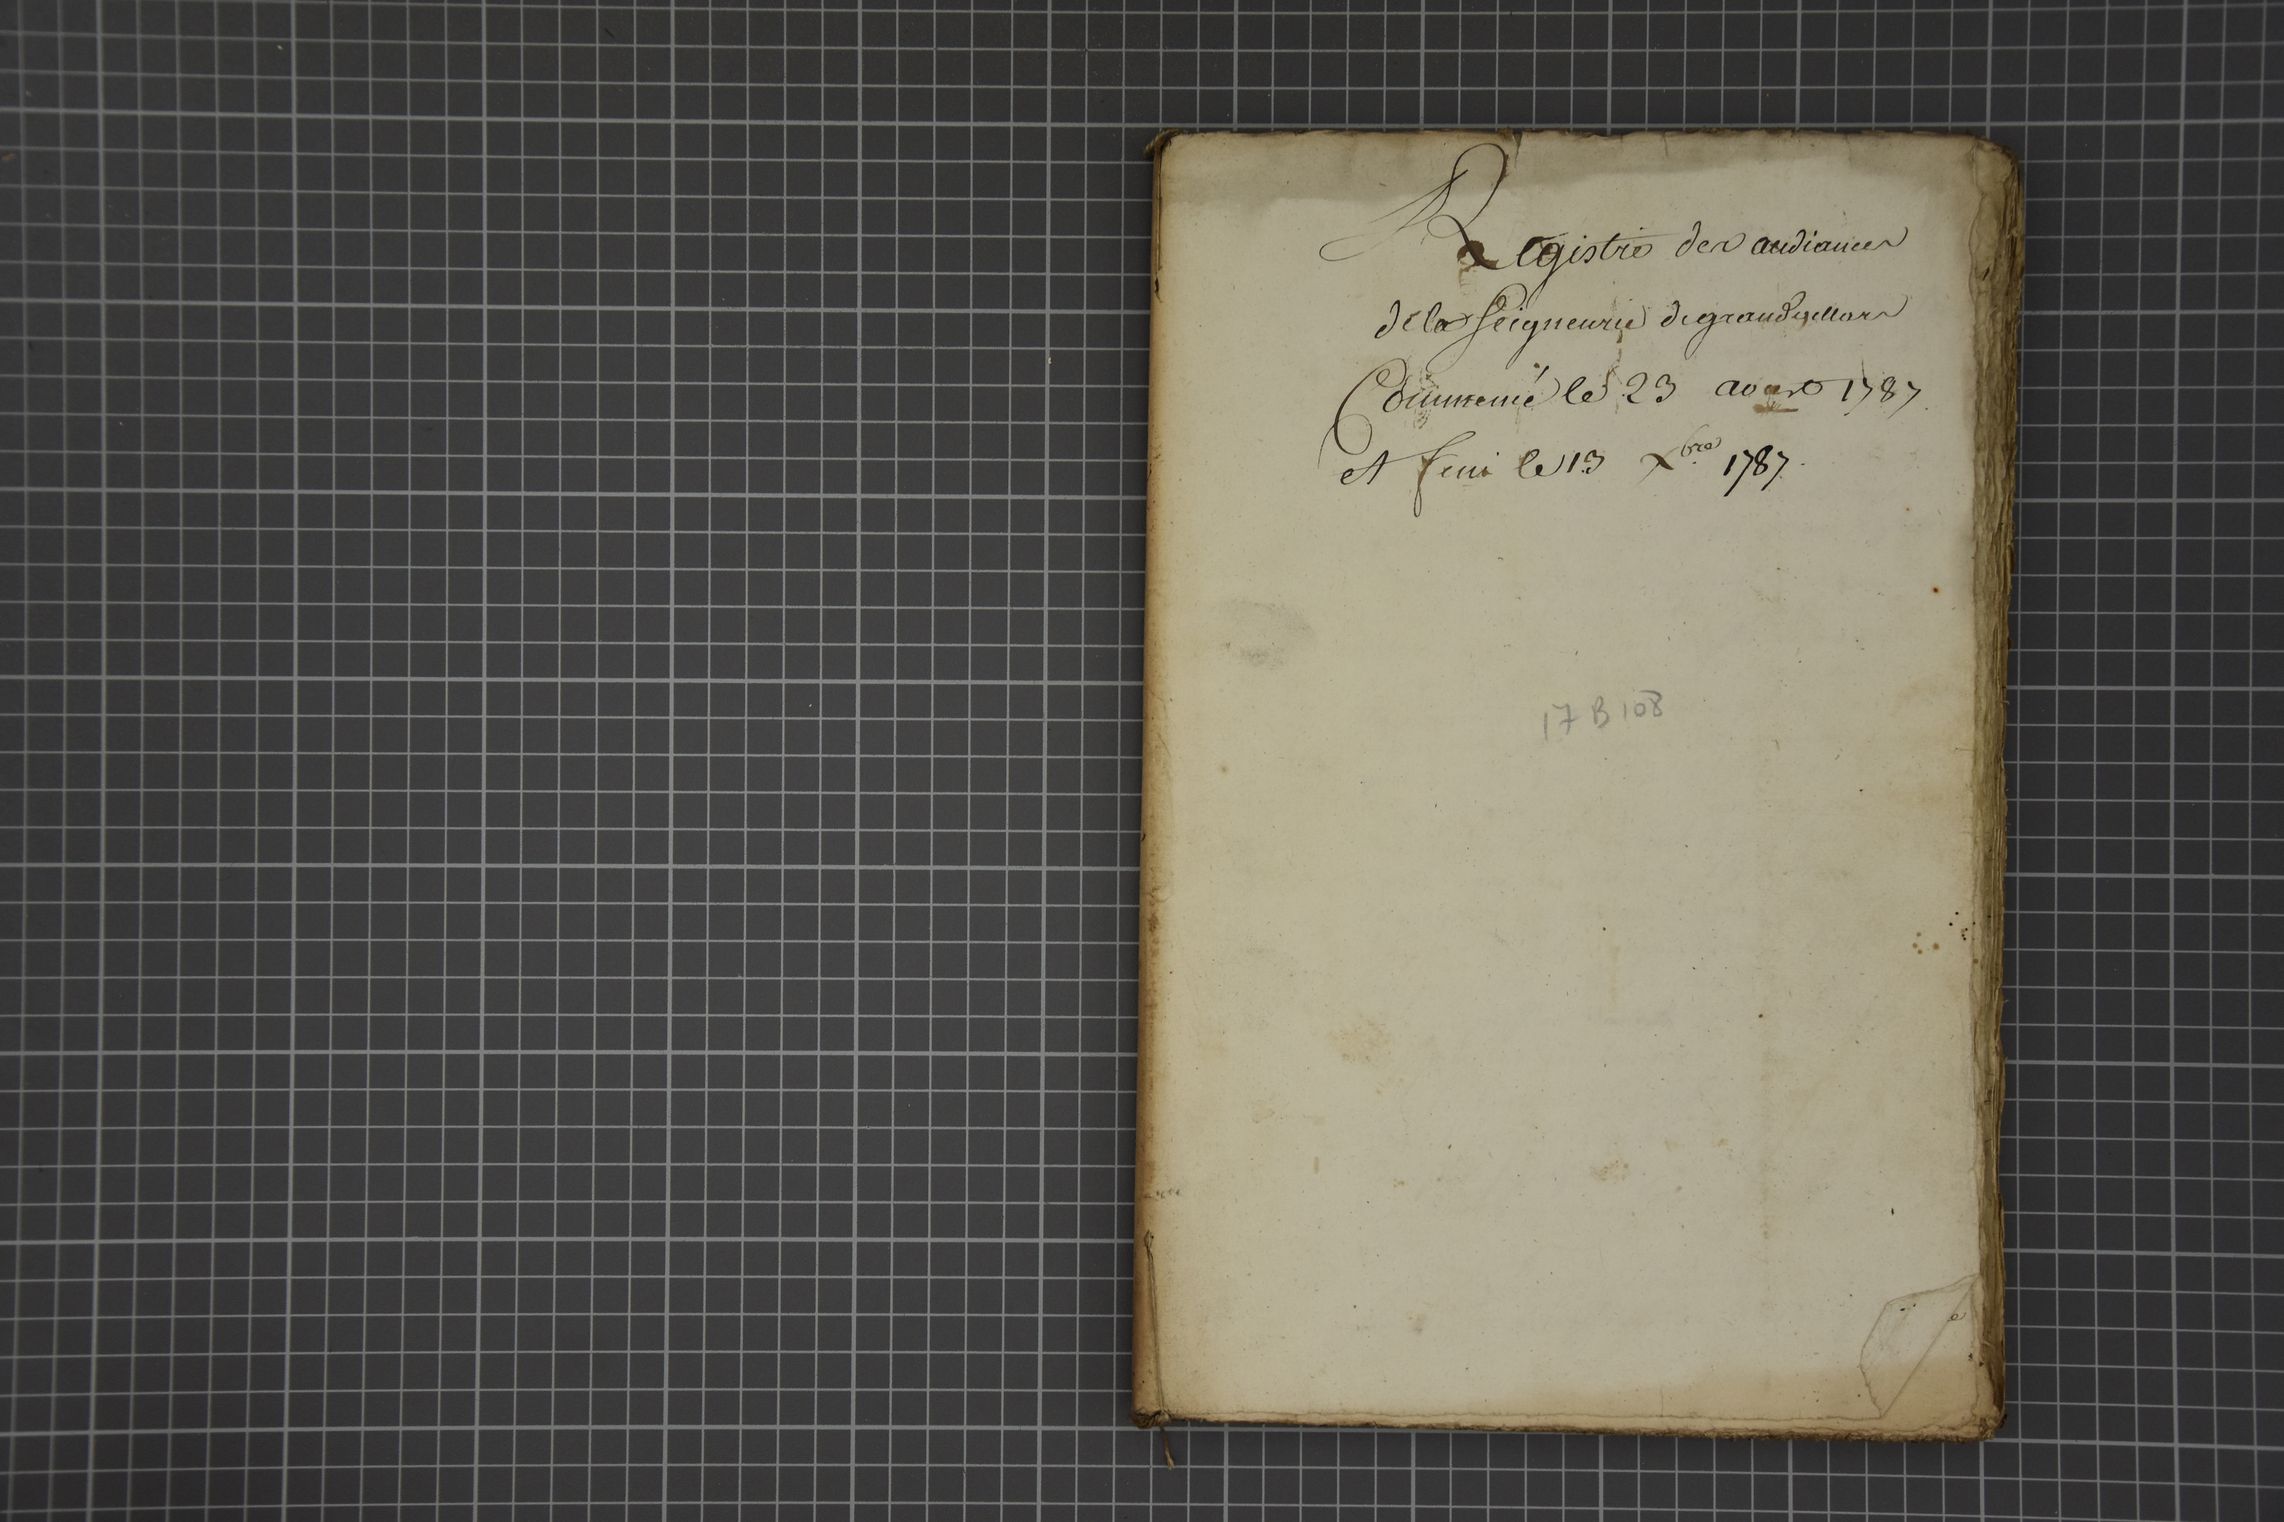 Registre des audiances
de la Seigneurie de grandvillars
Commencé le 23 aoust 1787
et fini le 13 Xbre 1787.
17 B 108